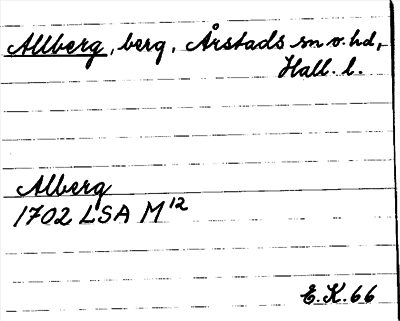 Allberg, berg, Årstads sn o. hd,
Hall. l.
Alberg
1702 LSA M12
E.K. 66